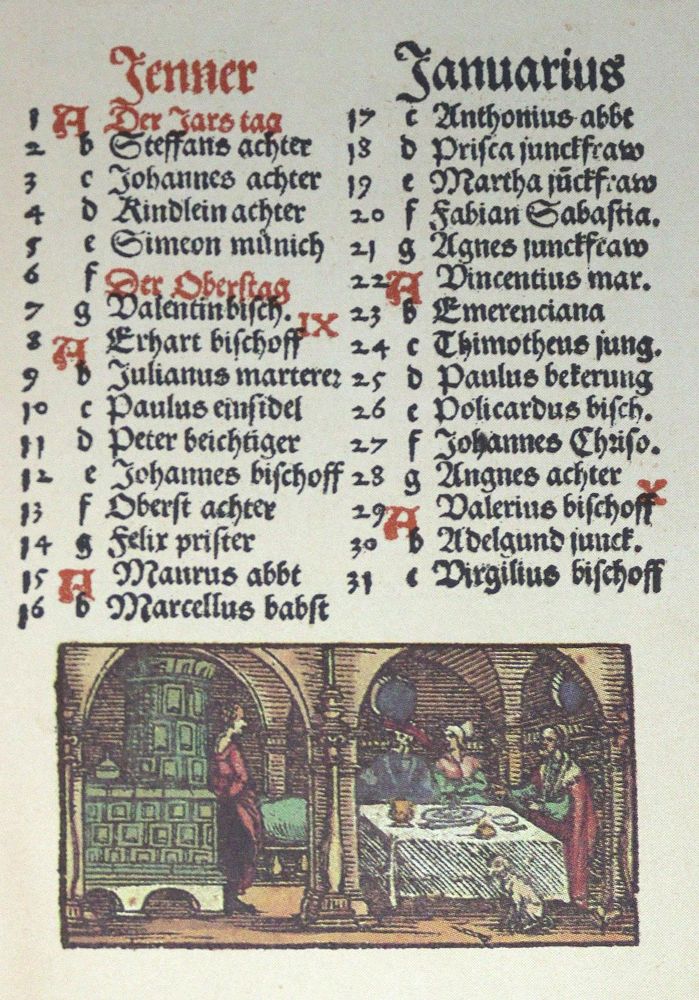 Jenner
1 A Der Jars tag
2 b Steffans achter
3 c Johannes achter
4 d Kindlein achter
5 e Simeon münich
6 f Der Oberstag
7 g Valentin bisch.
IX
8 A Erhart bischoff
9 b Julianus marterer
10 c Paulus einsidel
11 d Peter beichtiger
12 e Johannes bischoff
13 f Oberst achter
14 g Felix prister
15 A Maurus abbt
16 b Marcellus babst
Januarius
17 c Anthonius abbt
18 d Prisca junckfraw
19 e Martha jūckfraw
20 f Fabian Sabastia.
21 g Agnes junckfraw
22 A Vincentius mar.
23 b Emerenciana
24 c Thimotheus jung.
25 d Paulus bekerung
26 e Policardus bisch.
27 f Johannes Chriso.
28 g Angnes achter
X
29 A Valerius bischoff
30 b Adelgund junck.
31 c Virgilius bischoff